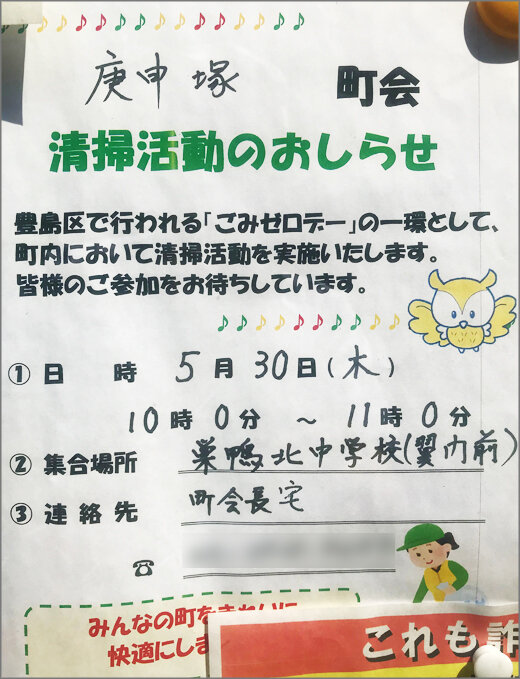 庚申塚 町会
清掃活動のおしらせ
豊島区で行われる「ごみゼロデー」の一環として、
町内において清掃活動を実施いたします。
皆様のご参加をお待ちしています。
① 日 時 5月30日(木)
10時0分 ～ 11時0分
② 集合場所 巣鴨北中学校(翼内前)
③ 連絡先 町会長宅
☎
みんなの町をきれいに
快適にしま
これも詐